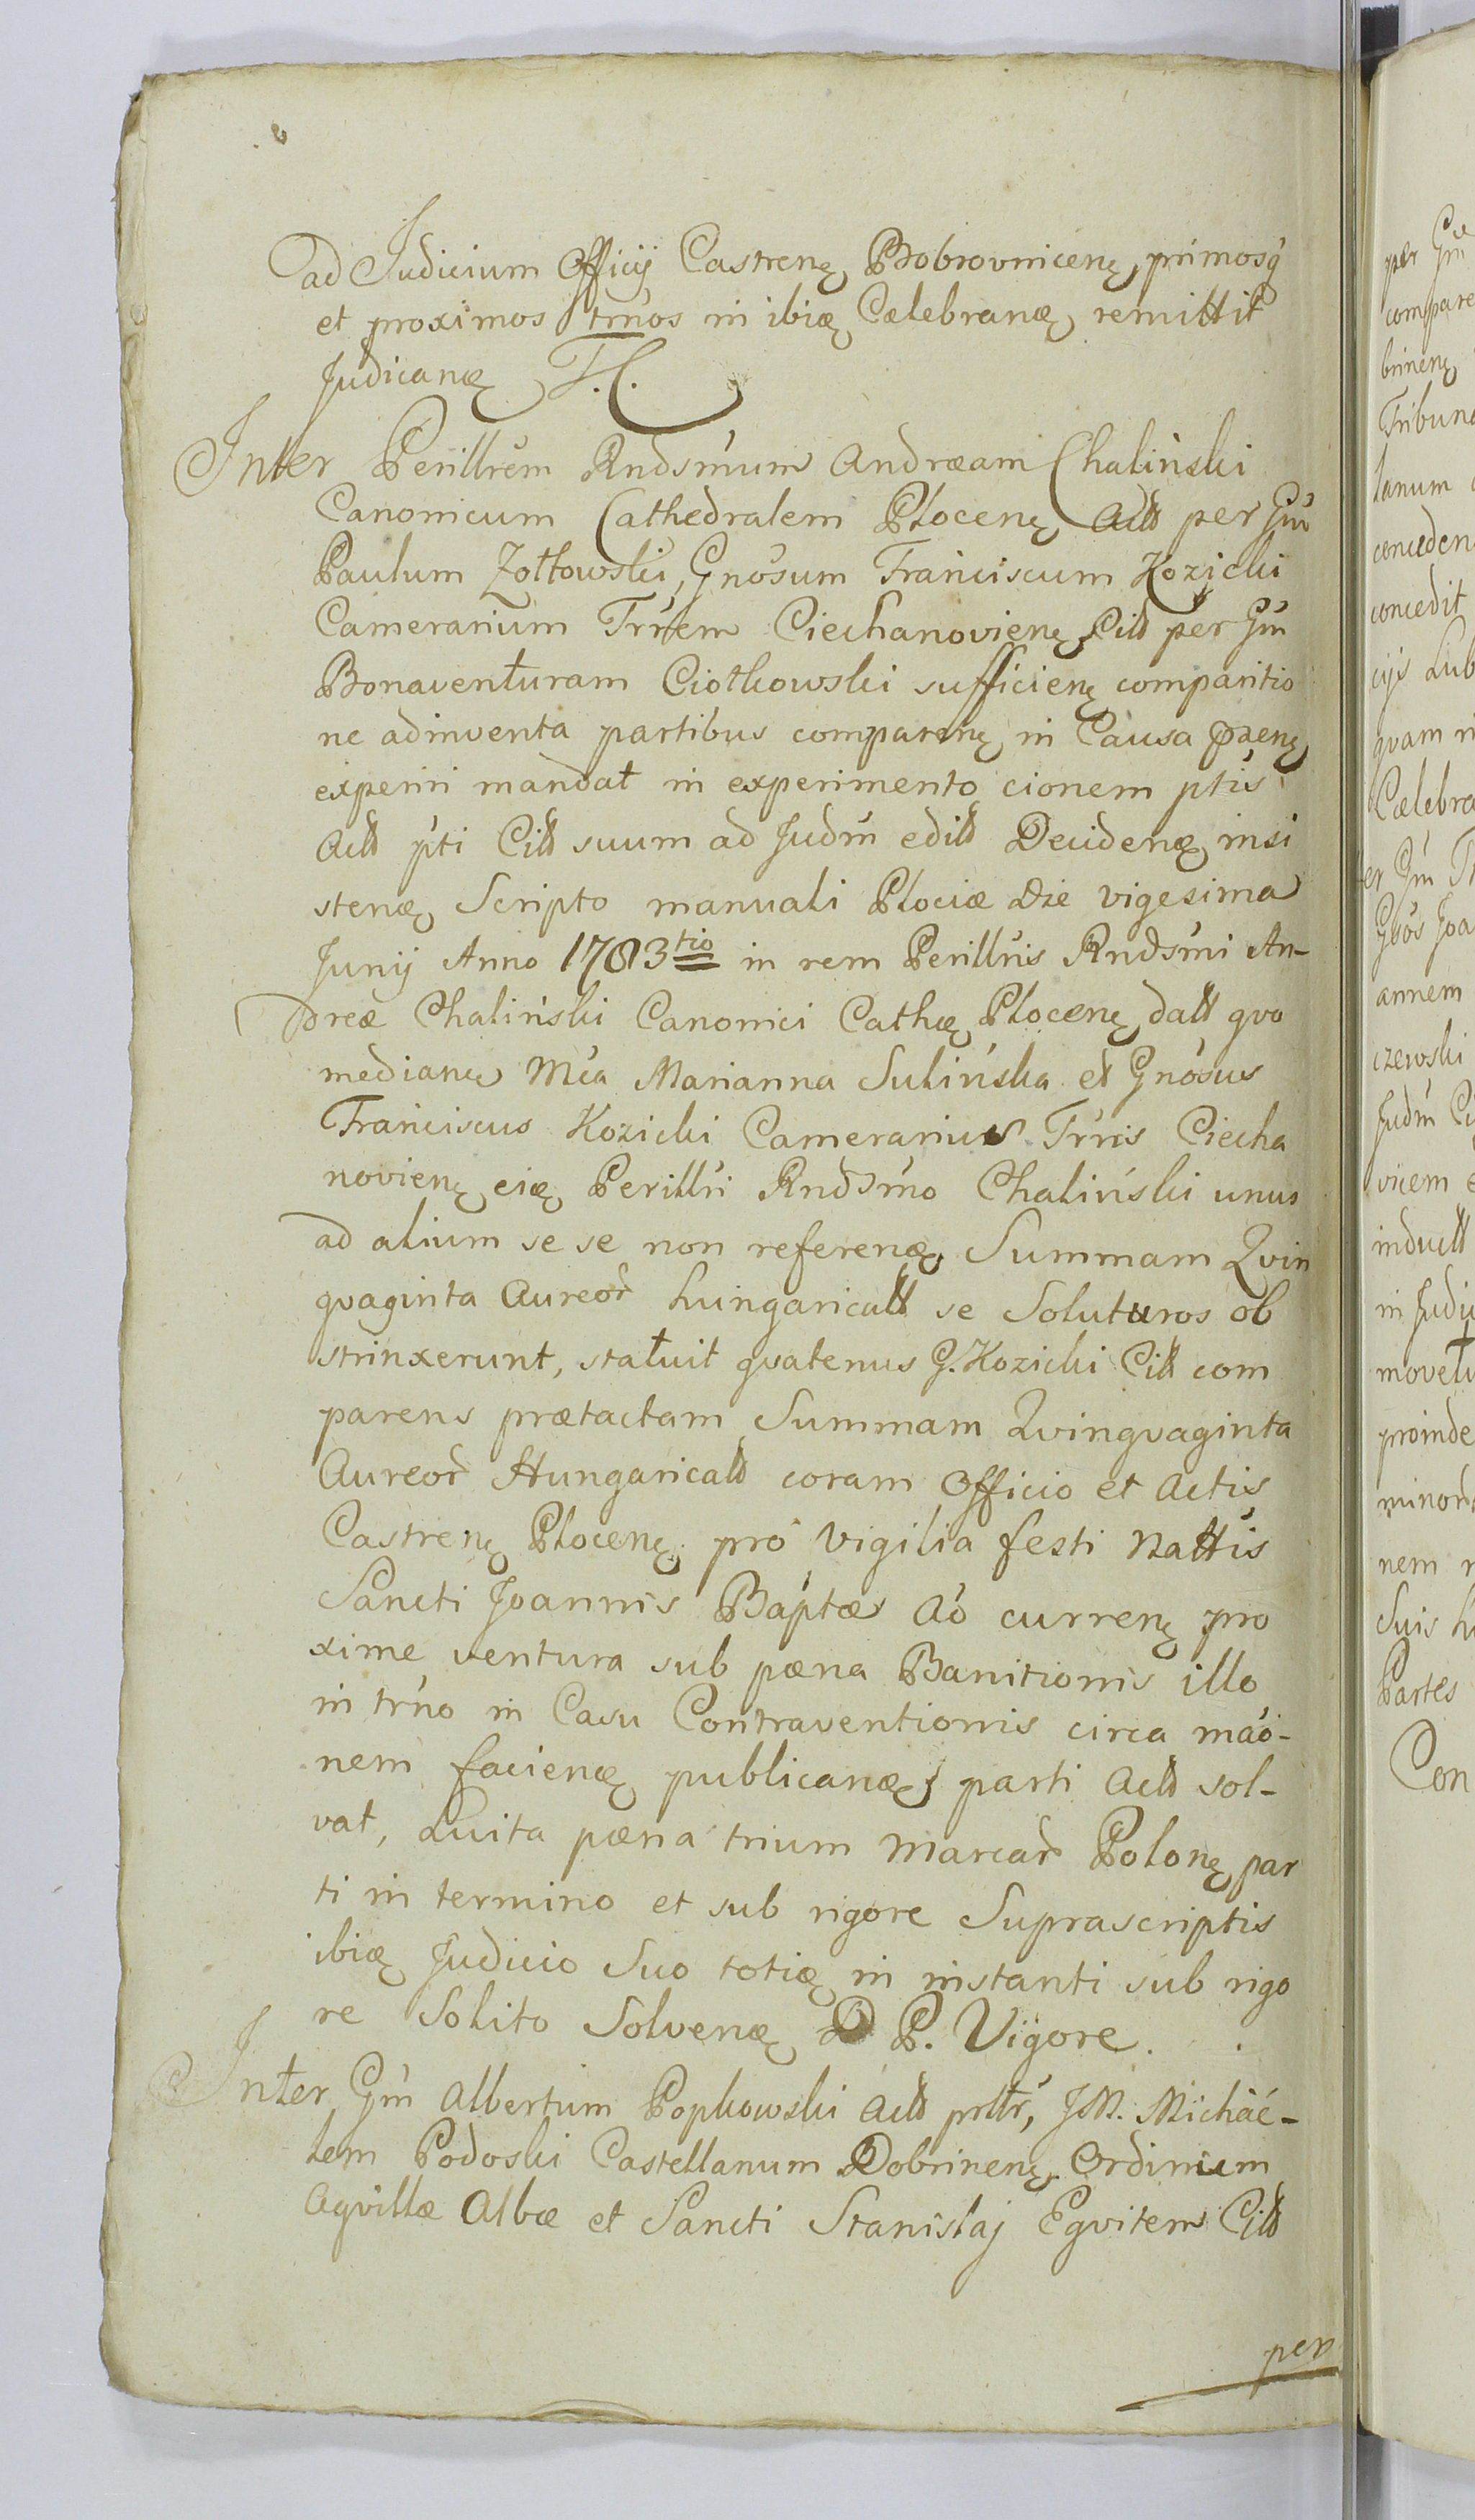 ad Judicium Officij Castrenę Bobrovnicenę, primosq́
et proximos trńos in ibią Cælebraną remittit
Judicaną T.C.
Inter Perillrém Rndsḿum Andræam Chaliński
Canonicum Cathedralem Plocenę Actt per Gḿ
Paulum Zołtowski, Gnósum Franciscum Kozicki
Camerarium Trŕem Ciechanovienę Citt per Gḿ
Bonaventuram Ciołkowski sufficienę comparitio
ne adinventa partibus comparenę in Causa præenę
experiri mandat in experimento cionem ptis
Actt pti Citt suum ad Judḿ editt Decideną insi
steną Scripto manuali Plociæ die vigesima
Junij Anno 1783tio in rem Perillŕis Rndsḿi An-
dreæ Chaliński Canonici Cathę Plocenę datt qvo
mediane Mća Marianna Sulińska et Gnósus
Franciscus Kozicki Camerarius Trŕis Ciecha
novienę eią Perillŕi Rndsḿo Chaliński unus
ad alium se se non refereną Summam Qvin
qvaginta Aureor̃ hungaricatt se Soluturos ob
strinxerunt, statuit qvatenus G. Kozicki Citt com
parens prætactam Summam Qvinqvaginta
Aureor̃ Hungaricatt coram Officio et Actis
Castrenę Plocenę pro vigilia festi Nattis
Sancti Joannis Baptæ Aó currenę pro
xime ventura sub pæna Banitionis illo
in trńo in Casu Contraventionis circa máo-
nem facieną publicaną parti Actt sol-
vat, Luita pæna trium Marcar̃ Polonę par
ti in termino et sub rigore Suprascriptis
ibią Judicio Suo totią in instanti sub rigo
re Solito Solveną D P. Vigore.
Inter Gḿ Albertum Popkowski Actt prttŕ, JM. Michaé-
lem Podoski Castellanum Dobrinenę Ordinum
Aqvillæ Albæ et Sancti Stanislaj Eqvitem Citt
per
per Gḿ
compare
brinenę
Tribuna
lanum
conceden
concedit
cijs Lub
qvam
Cælebra
Gḿ
Gnós Joa
annem
czewski
Judḿ
vicem
inductt
in Judi
movet
proinde
minor̃
nem
Suis
Partes
Con